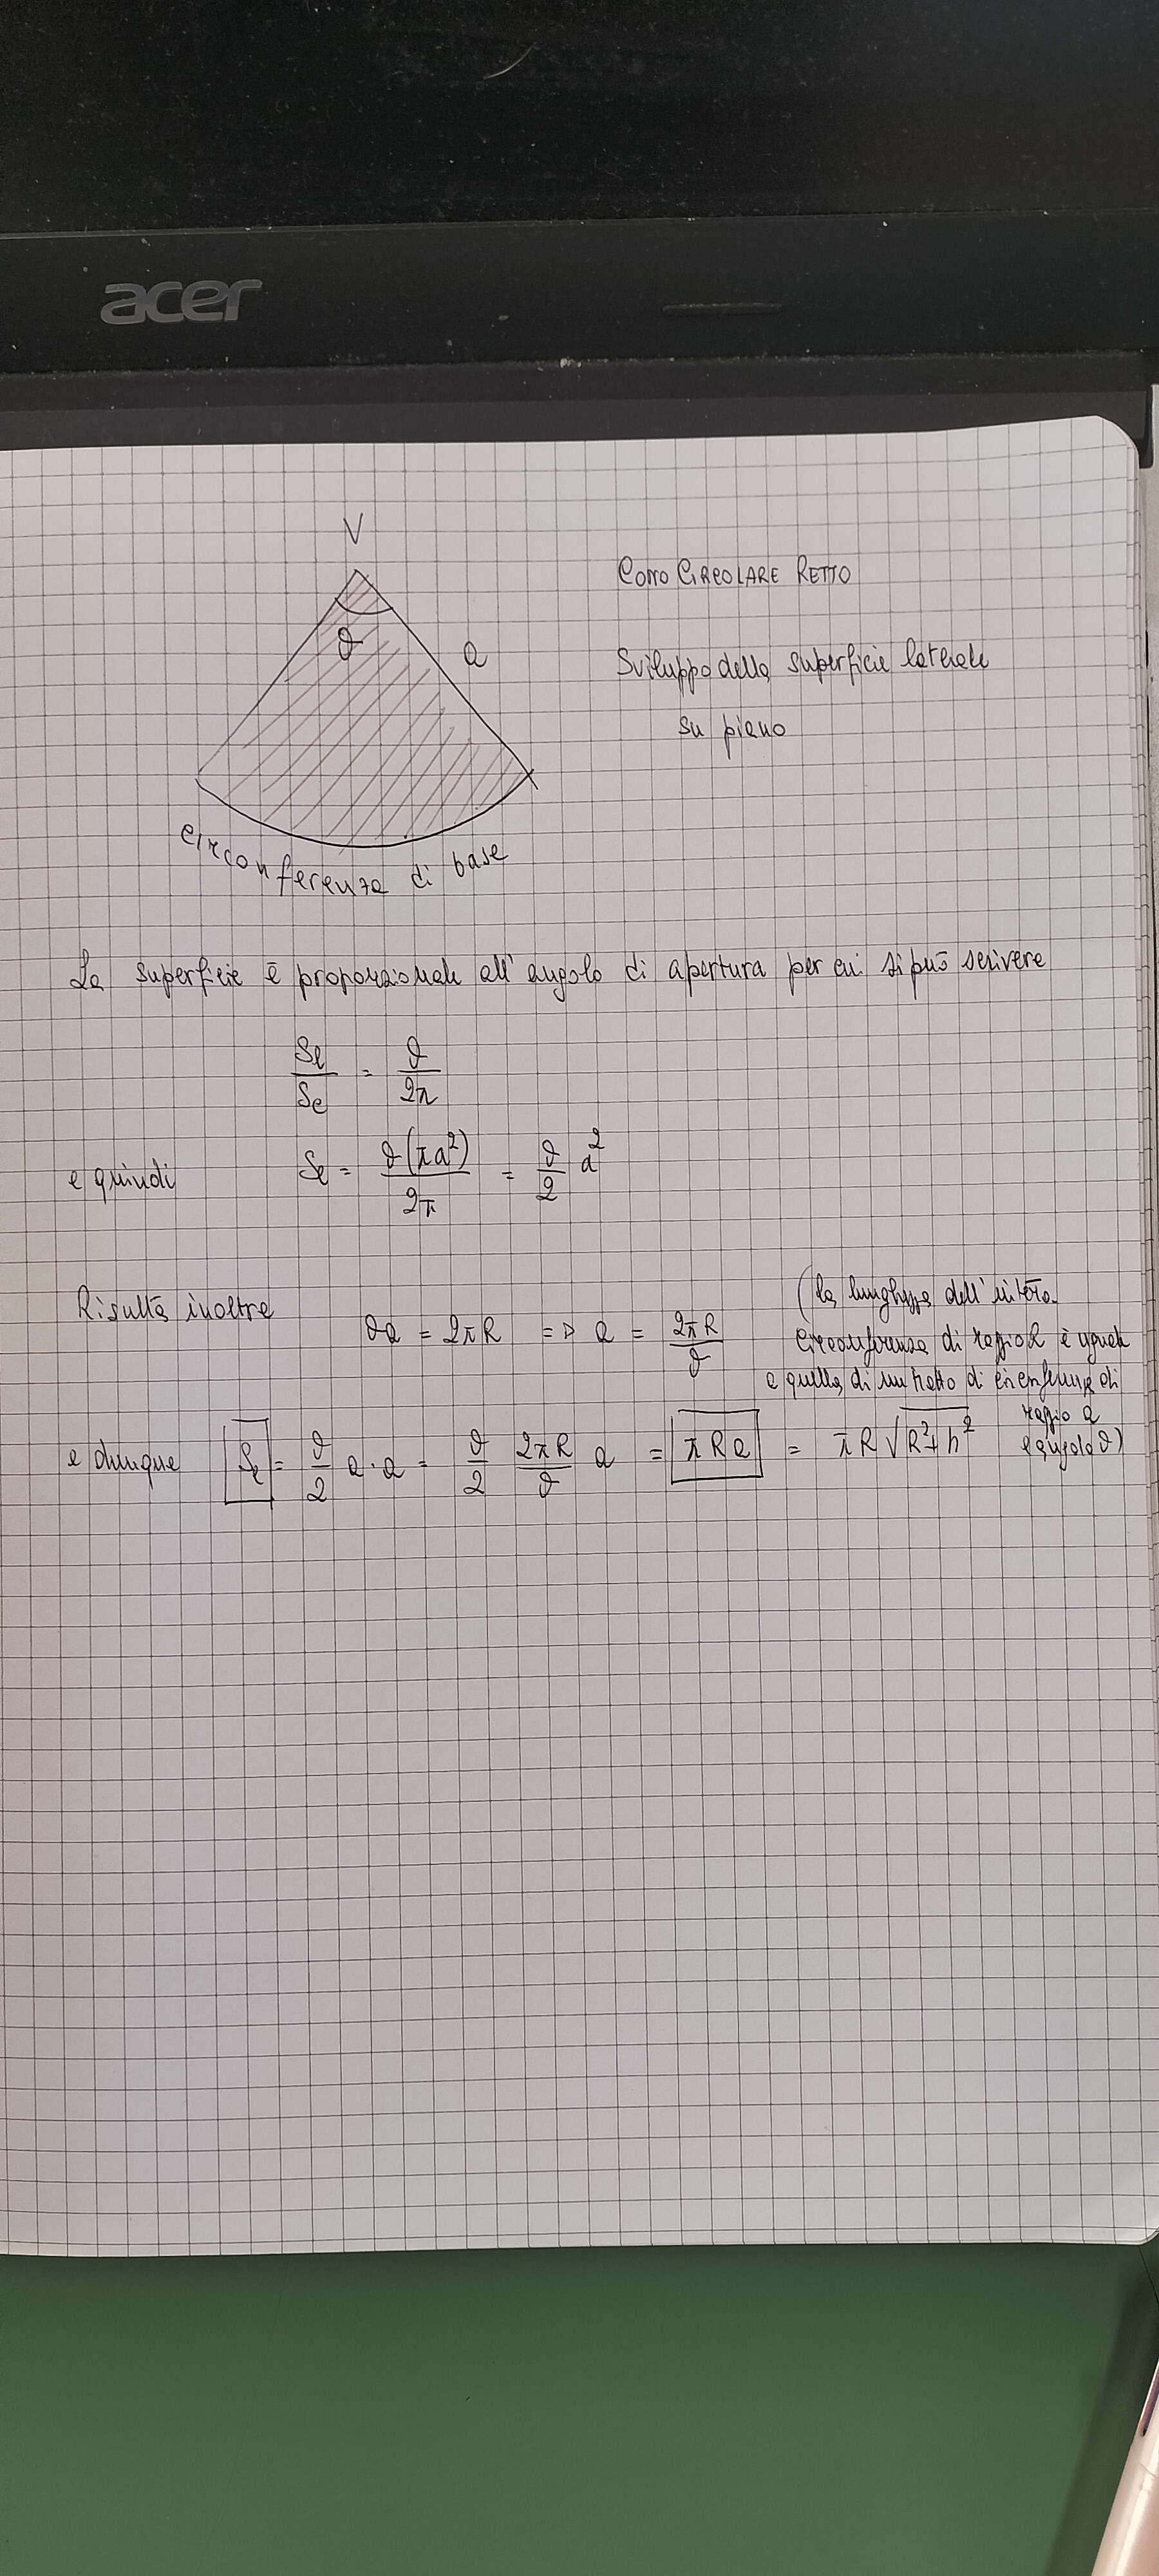 acer
V
ϑ
a
CONO CIRCOLARE RETTO
Sviluppo della superficie laterale
su piano
circonferenza di base
La superficie è proporzionale all'angolo di apertura per cui si può scrivere
Sℓ/Sc = ϑ/2π
e quindi Sℓ = ϑ(πa²)/2π = ϑ/2 a²
Risulta inoltre ϑa = 2πR => a = 2πR/ϑ
(la lunghezza dell'intera
circonferenza di raggio R è uguale
a quella di un tratto di circonferenza di
raggio a
e angolo ϑ)
e dunque Sℓ = ϑ/2 a·a = ϑ/2 2πR/ϑ a = πRa = πR√R²+h²